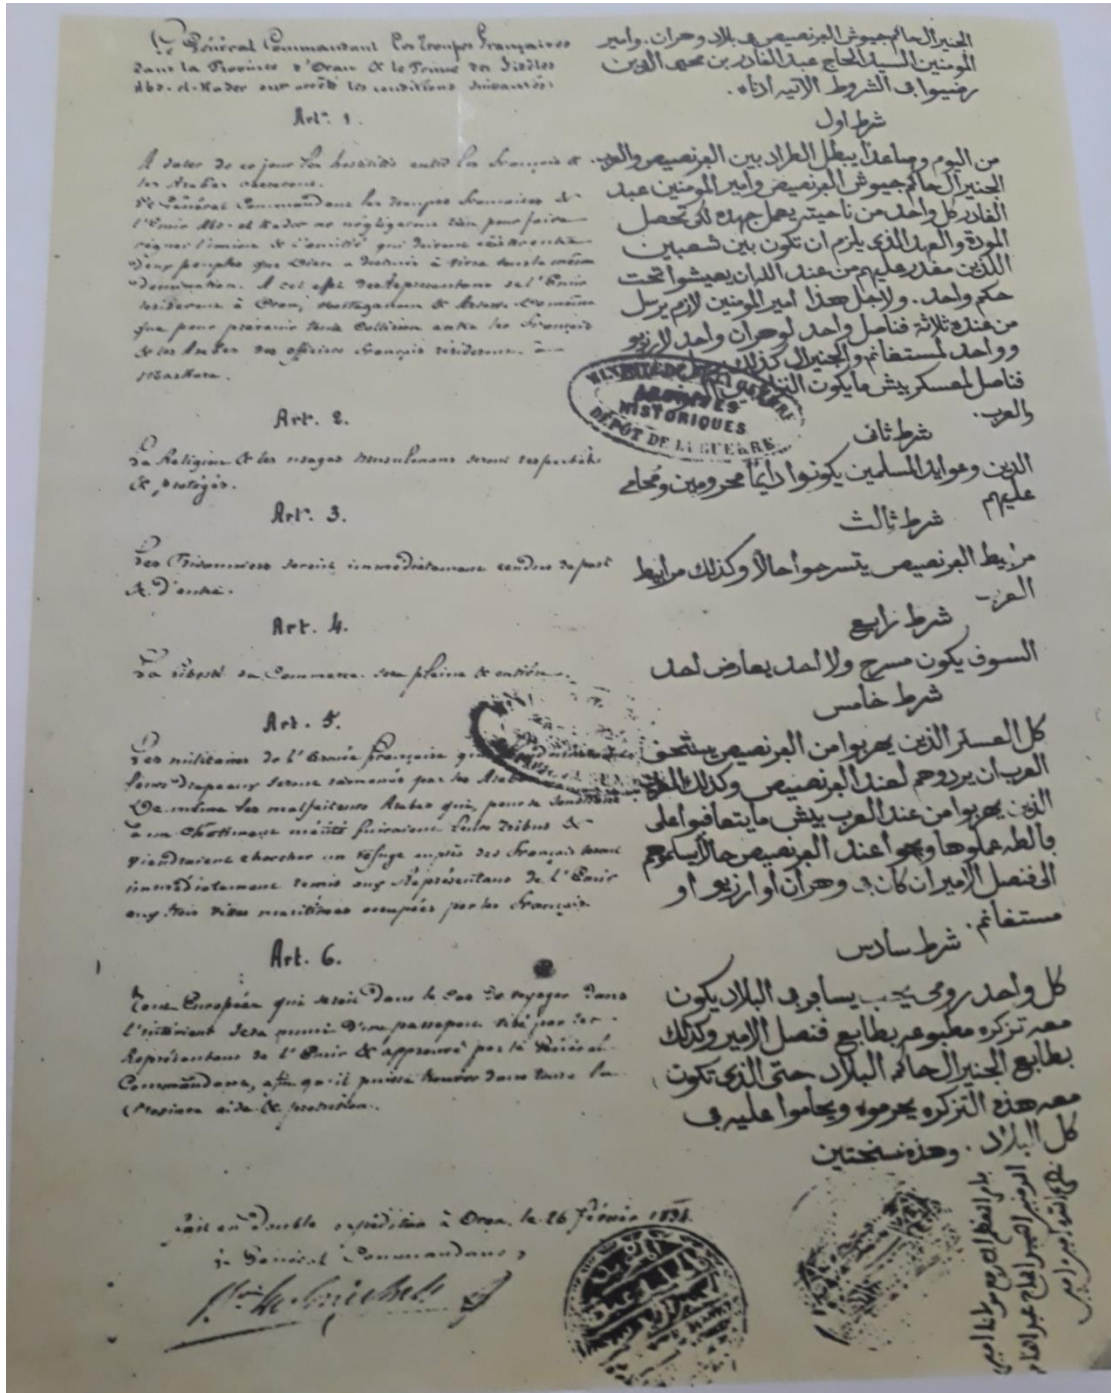 Le Général Commandant les troupes françaises
dans la Province d'Oran & le Prince des fidèles
Abd-el-Kader ont arrêté les conditions suivantes:
Art. 1.
A dater de ce jour les hostilités entre les français &
les Arabes cesseront.
Le Général Commandant les troupes françaises &
l'Emir Abd-el-Kader ne négligeront rien pour faire
régner l'union & l'amitié qui doivent exister entre
deux peuples que Dieu a destinés à vivre sous la même
domination. A cet effet des Représentans de l'Emir
résideront à Oran, Mostaganem & Arzew. De même
que pour prévenir toute collision entre les français
& les Arabes des officiers français résideront à
Maskara.
Art. 2.
La Religion & les usages musulmans seront respectés
& protégés.
Art. 3.
Les Prisonniers seront immédiatement rendus de part
& d'autre.
Art. 4.
La liberté du Commerce sera pleine & entière.
Art. 5.
Les militaires de l'Armée française qui
leurs drapeaux seront ramenés par les Arabes
De même les malfaiteurs Arabes qui, pour se soustraire
à un châtiment mérité fuiraient leurs tribus &
viendraient chercher un refuge auprès des français seront
immédiatement remis aux Représentans de l'Emir
aux trois villes maritimes occupées par les français.
Art. 6.
Tout Européen qui serait dans le cas de voyager dans
l'intérieur sera muni d'un passeport visé par les
Représentans de l'Emir & approuvé par le Général
Commandant, afin qu'il puisse trouver dans toute la
Province aide & protection.
Fait en double expédition à Oran, le 26 février 1834.
Le Général Commandant,
الجنيرال حاكم جيوش الفرنصيص في بلاد وهران. وامير
المومنين السيد الحاج عبد القادر بن محيي الدين
رضيوا في الشروط الاتيه ادناه.
شرط اول
من اليوم وصاعدا يبطل الطراد بين الفرنصيص والعرب.
الجنيرال حاكم جيوش الفرنصيص وامير المومنين عبد
القادر كل واحد من ناحيته يعمل جهده لكي تحصل
المودة والعهد الذي يلزم ان تكون بين شعبين
اللذين مقدر عليهم من عند الله ان يعيشوا تحت
حكم واحد. ولاجل هذا امير المومنين لازم يرسل
من عنده ثلاثة قناصل واحد لوهران واحد لارزيو
وواحد لمستغانم والجنيرال كذلك
قناصل لمعسكر بيش ما يكون
والعرب.
شرط ثاني
الدين وعوايد المسلمين يكونوا دايمًا محرومين ومحامي
عليهم
شرط ثالث
مرابيط الفرنصيص يتسرحوا حالاً وكذلك مرابيط
العرب
شرط رابع
السوق يكون مسرح ولا احد يعارض احد
شرط خامس
كل العسكر الذين يهربوا من الفرنصيص يستحق
العرب ان يردوهم لعند الفرنصيص وكذلك العرب
الذين يهربوا من عند العرب بيش ما يتعاقبوا على
غالطه عملوها ويجوا عند الفرنصيص حالاً يسلموهم
الى قنصل الامير ان كان في وهران أو ارزيو أو
مستغانم.
شرط سادس
كل واحد رومي يحب يسافر في البلاد يكون
معه تزكره مطبوعه بطابع قنصل الامير وكذلك
بطابع الجنيرال حاكم البلاد حتى الذي تكون
معه هذه التزكره يحرموه ويحاموا عليه في
كل البلاد. وهذه نسختين
MINISTÈRE DE LA GUERRE
ARCHIVES
HISTORIQUES
DÉPOT DE LA GUERRE